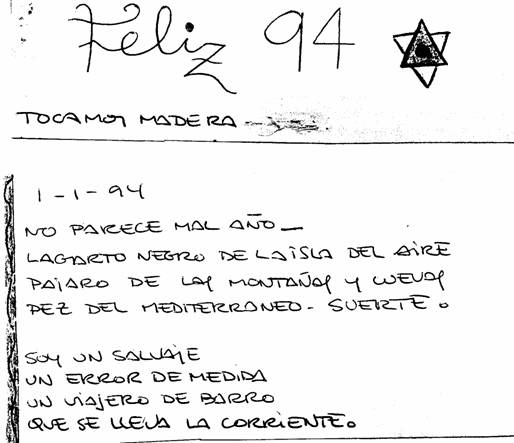 Feliz 94
TOCAMOS MADERA
1-1-94
NO PARECE MAL AÑO_
LAGARTO NEGRO DE LA ISLA DEL AIRE
PAJARO DE LAS MONTAÑAS Y CUEVAS
PEZ DEL MEDITERRANEO. SUERTE.
SOY UN SALVAJE
UN ERROR DE MEDIDA
UN VIAJERO DE BARRO
QUE SE LLEVA LA CORRIENTE.